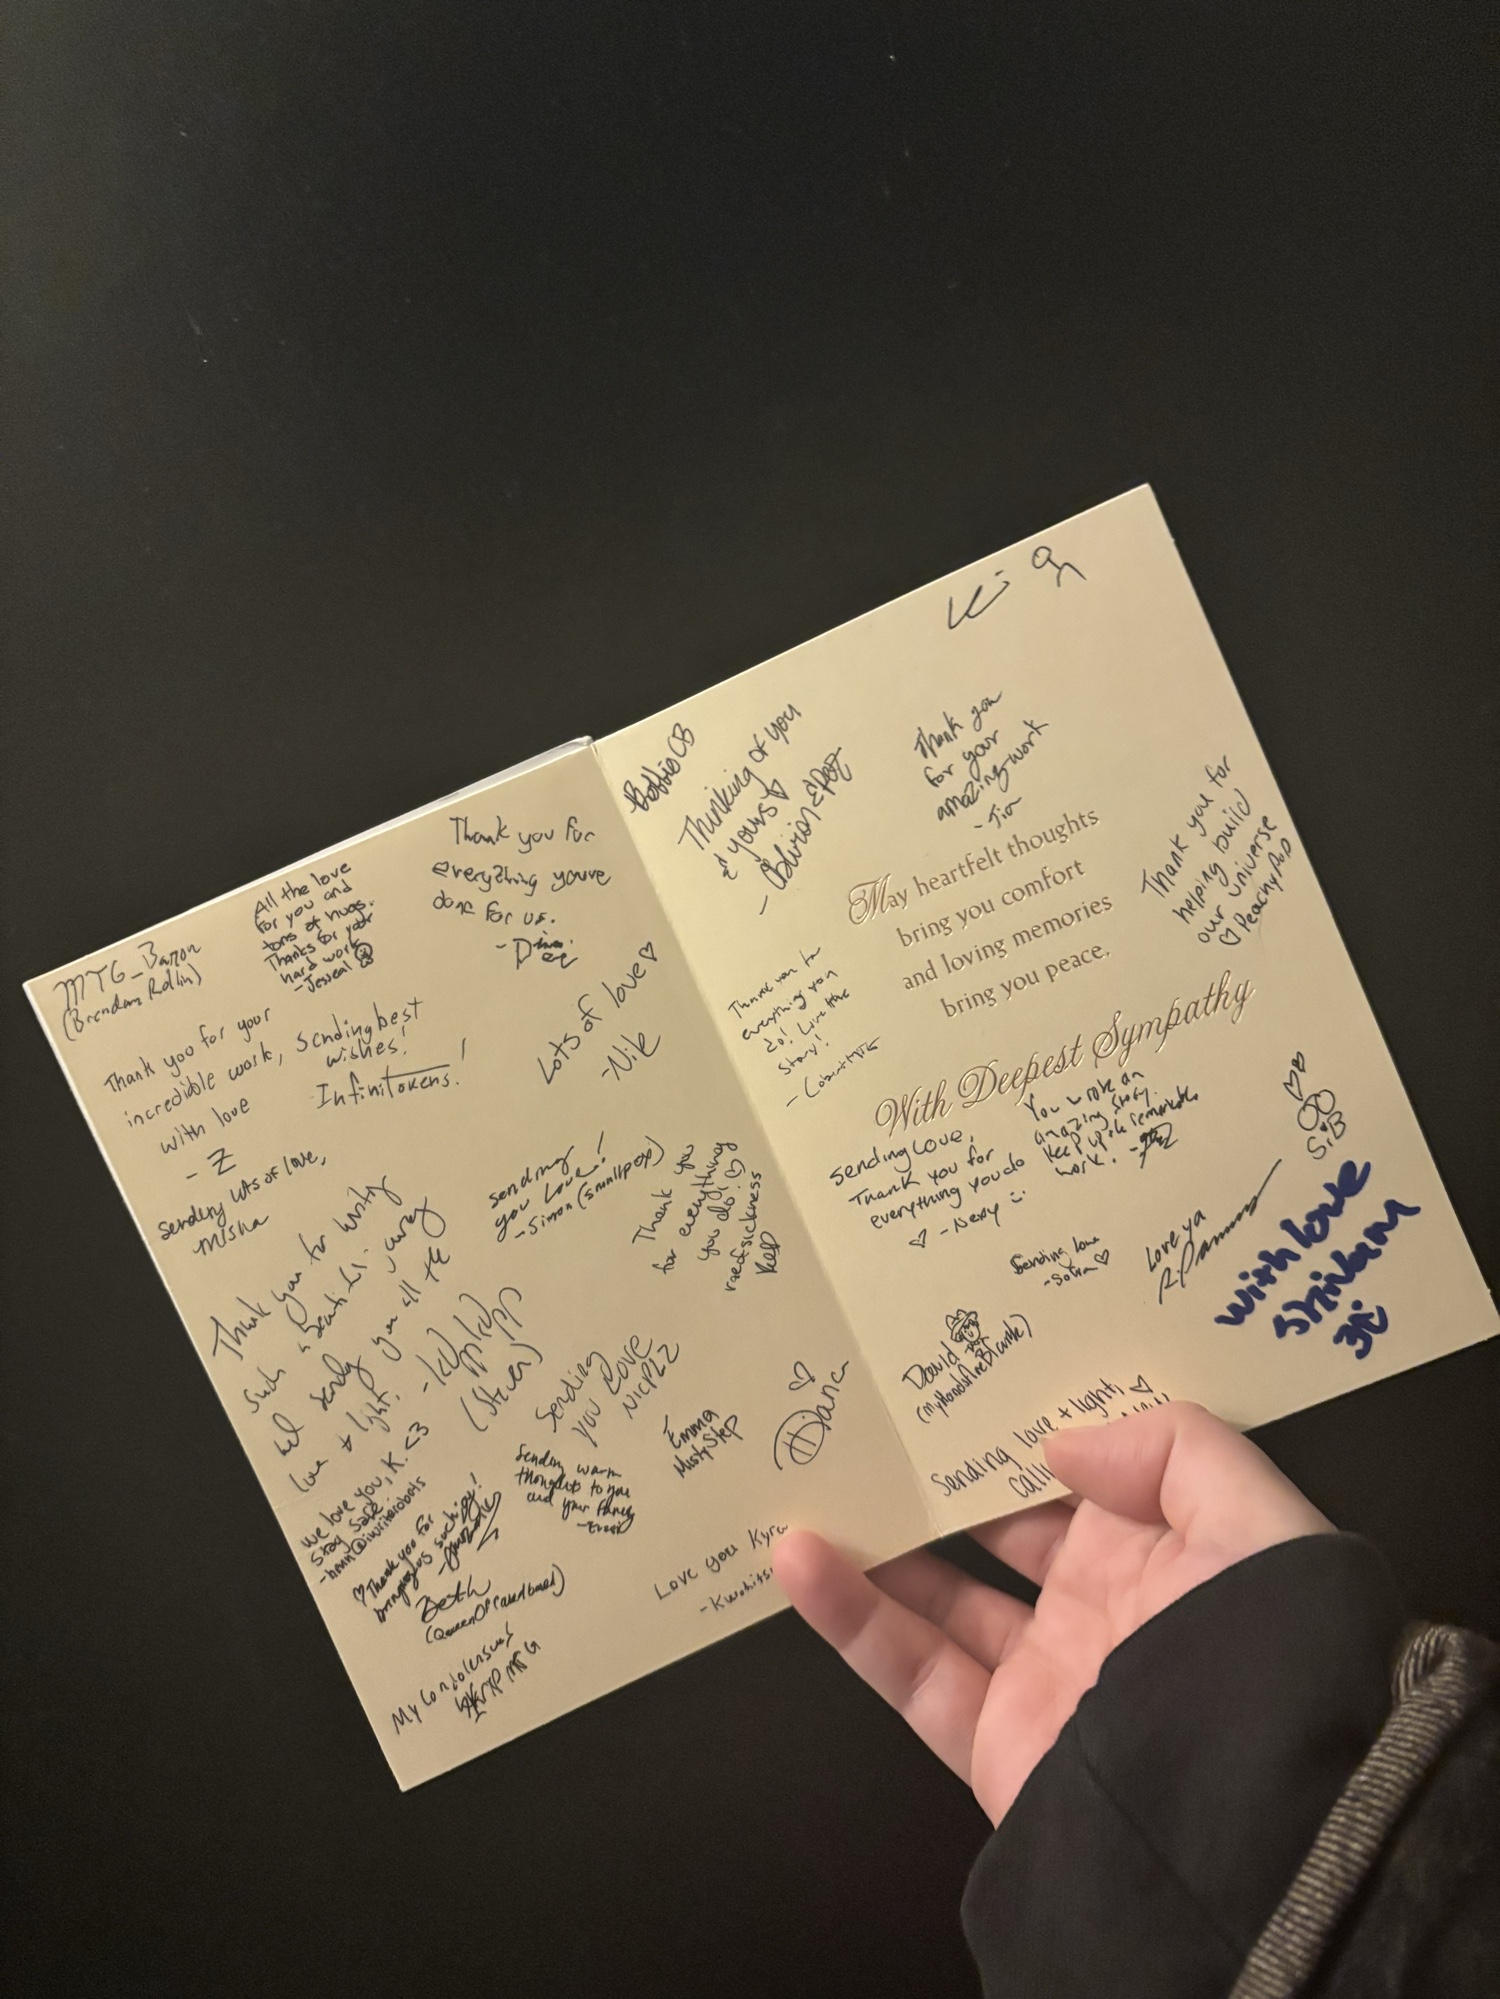 MTG_Baron
(Brendan Rollin)
All the love
for you and
tons of hugs.
Thanks for your
hard work
-Jessica
Thank you for
everything youve
done for us.
Thank you for your
incredible work,
with love
- Z
Sending best
wishes!
InfiniTokens!
Lots of love ♡
-Nik
sending lots of love,
Misha
sending
you love!
-Simon (smallpox)
Thank you
for everything
you do! ♡
reedsickness
Thank you for
such a beautiful
send you all the
love + light.
(Steven)
Sending
you Love
We love you, K. <3
stay safe
@iwriterobots
♡ Thank you for
bringing us such joy!
Sending warm
thoughts to you
and your family
Emma
MistyStep
♡
Diana
Beth
(QueenOfCardboard)
My Condolences
MTG
Love you Kyra
BobbieCB
Thinking of you
and yours ♡
Thank you
for your
amazing work
May heartfelt thoughts
bring you comfort
and loving memories
bring you peace.
With Deepest Sympathy
Thank you for
helping build
our universe
♡ PeachyPop
Thank you for
everything you
do! Love the
story!
sending love,
Thank you for
everything you do
You wrote an
amazing story.
Keep up the remarkable
work!
Sending love
♡
SiB
Love ya
With love
Shivam
David
(MyHandsAreBlambk)
Sending love + light,